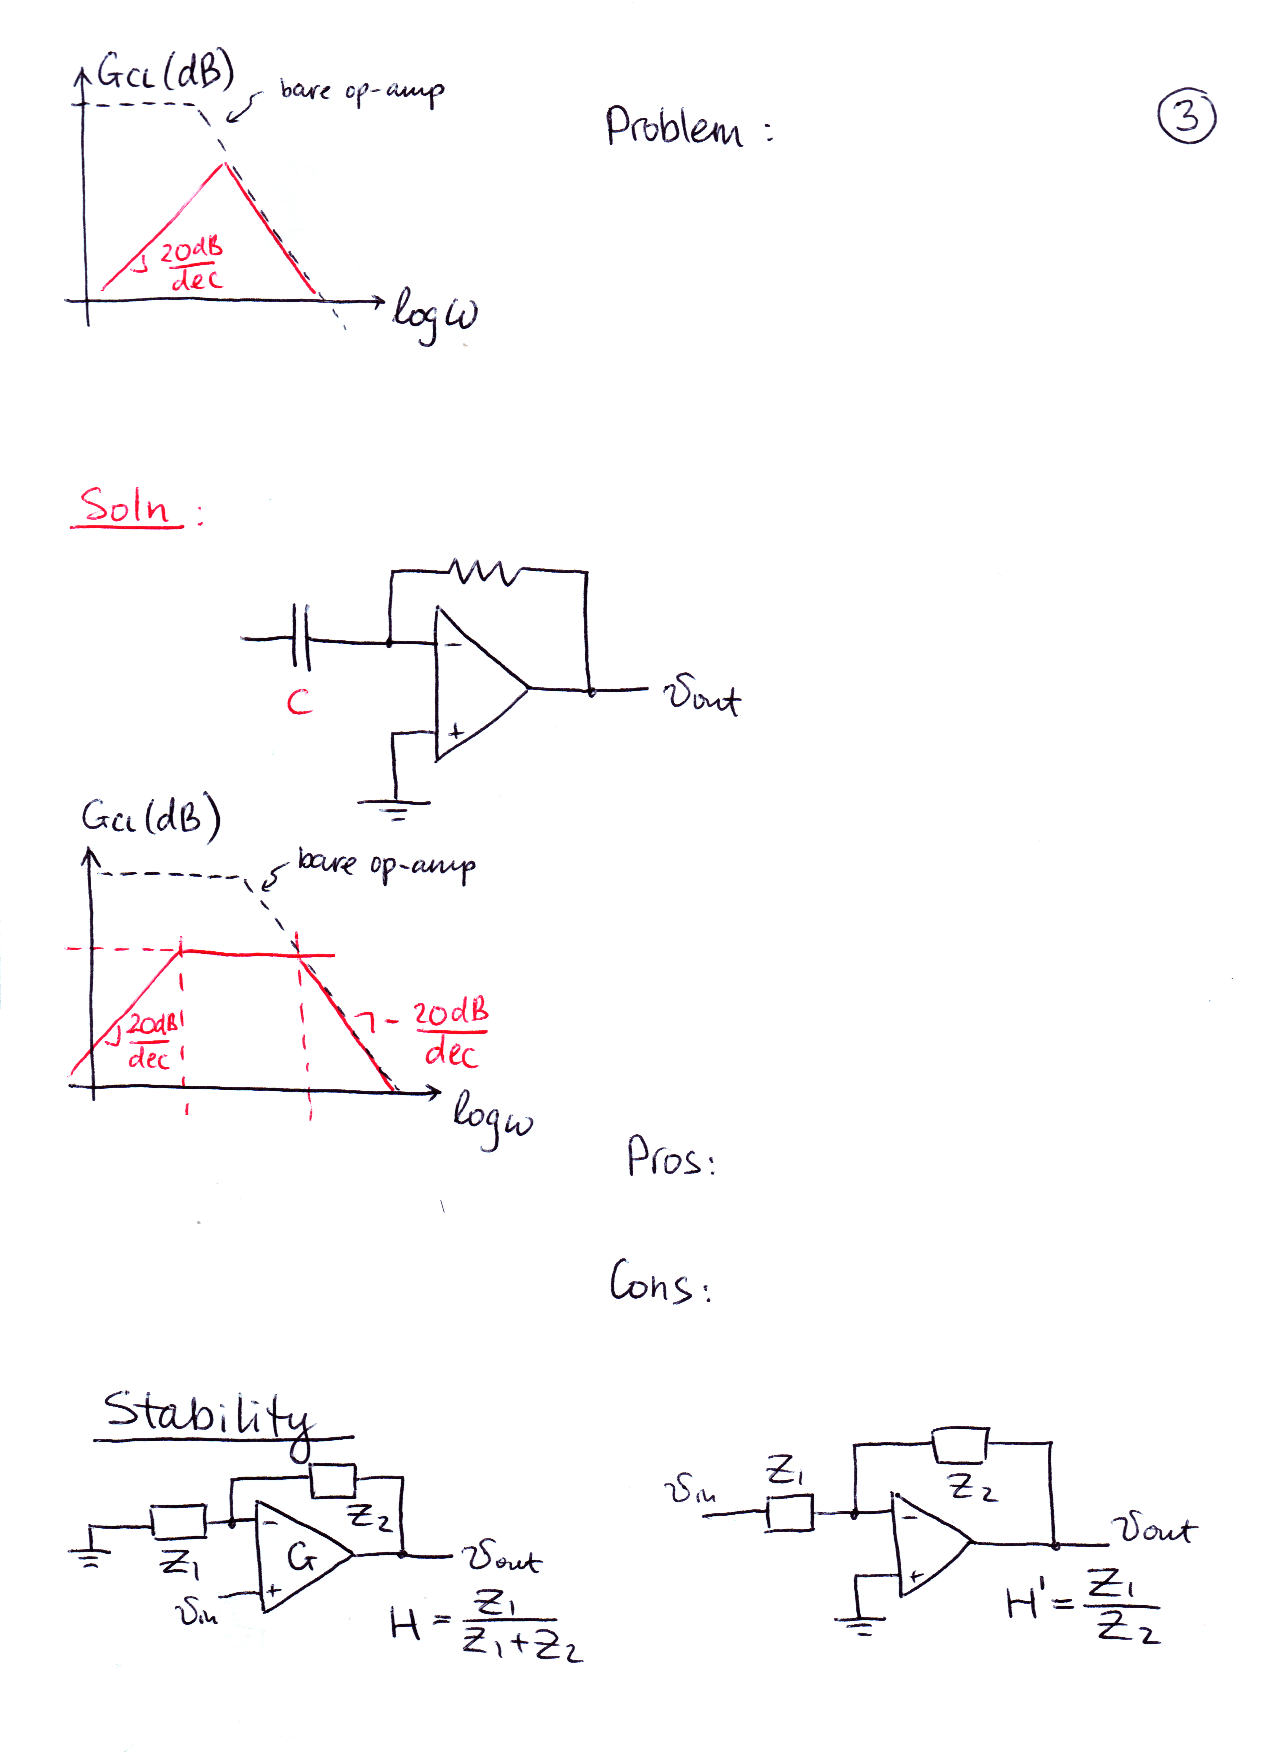 GCL (dB)
bare op-amp
Problem :
3
20dB
dec
log ω
Soln :
−
+
C
vout
GCL (dB)
bare op-amp
20dB
dec
- 20dB
dec
log ω
Pros:
Cons:
Stability
Z1
Z2
−
G
+
vin
vout
H = Z1
Z1+Z2
vin
Z1
Z2
−
+
vout
H' = Z1
Z2